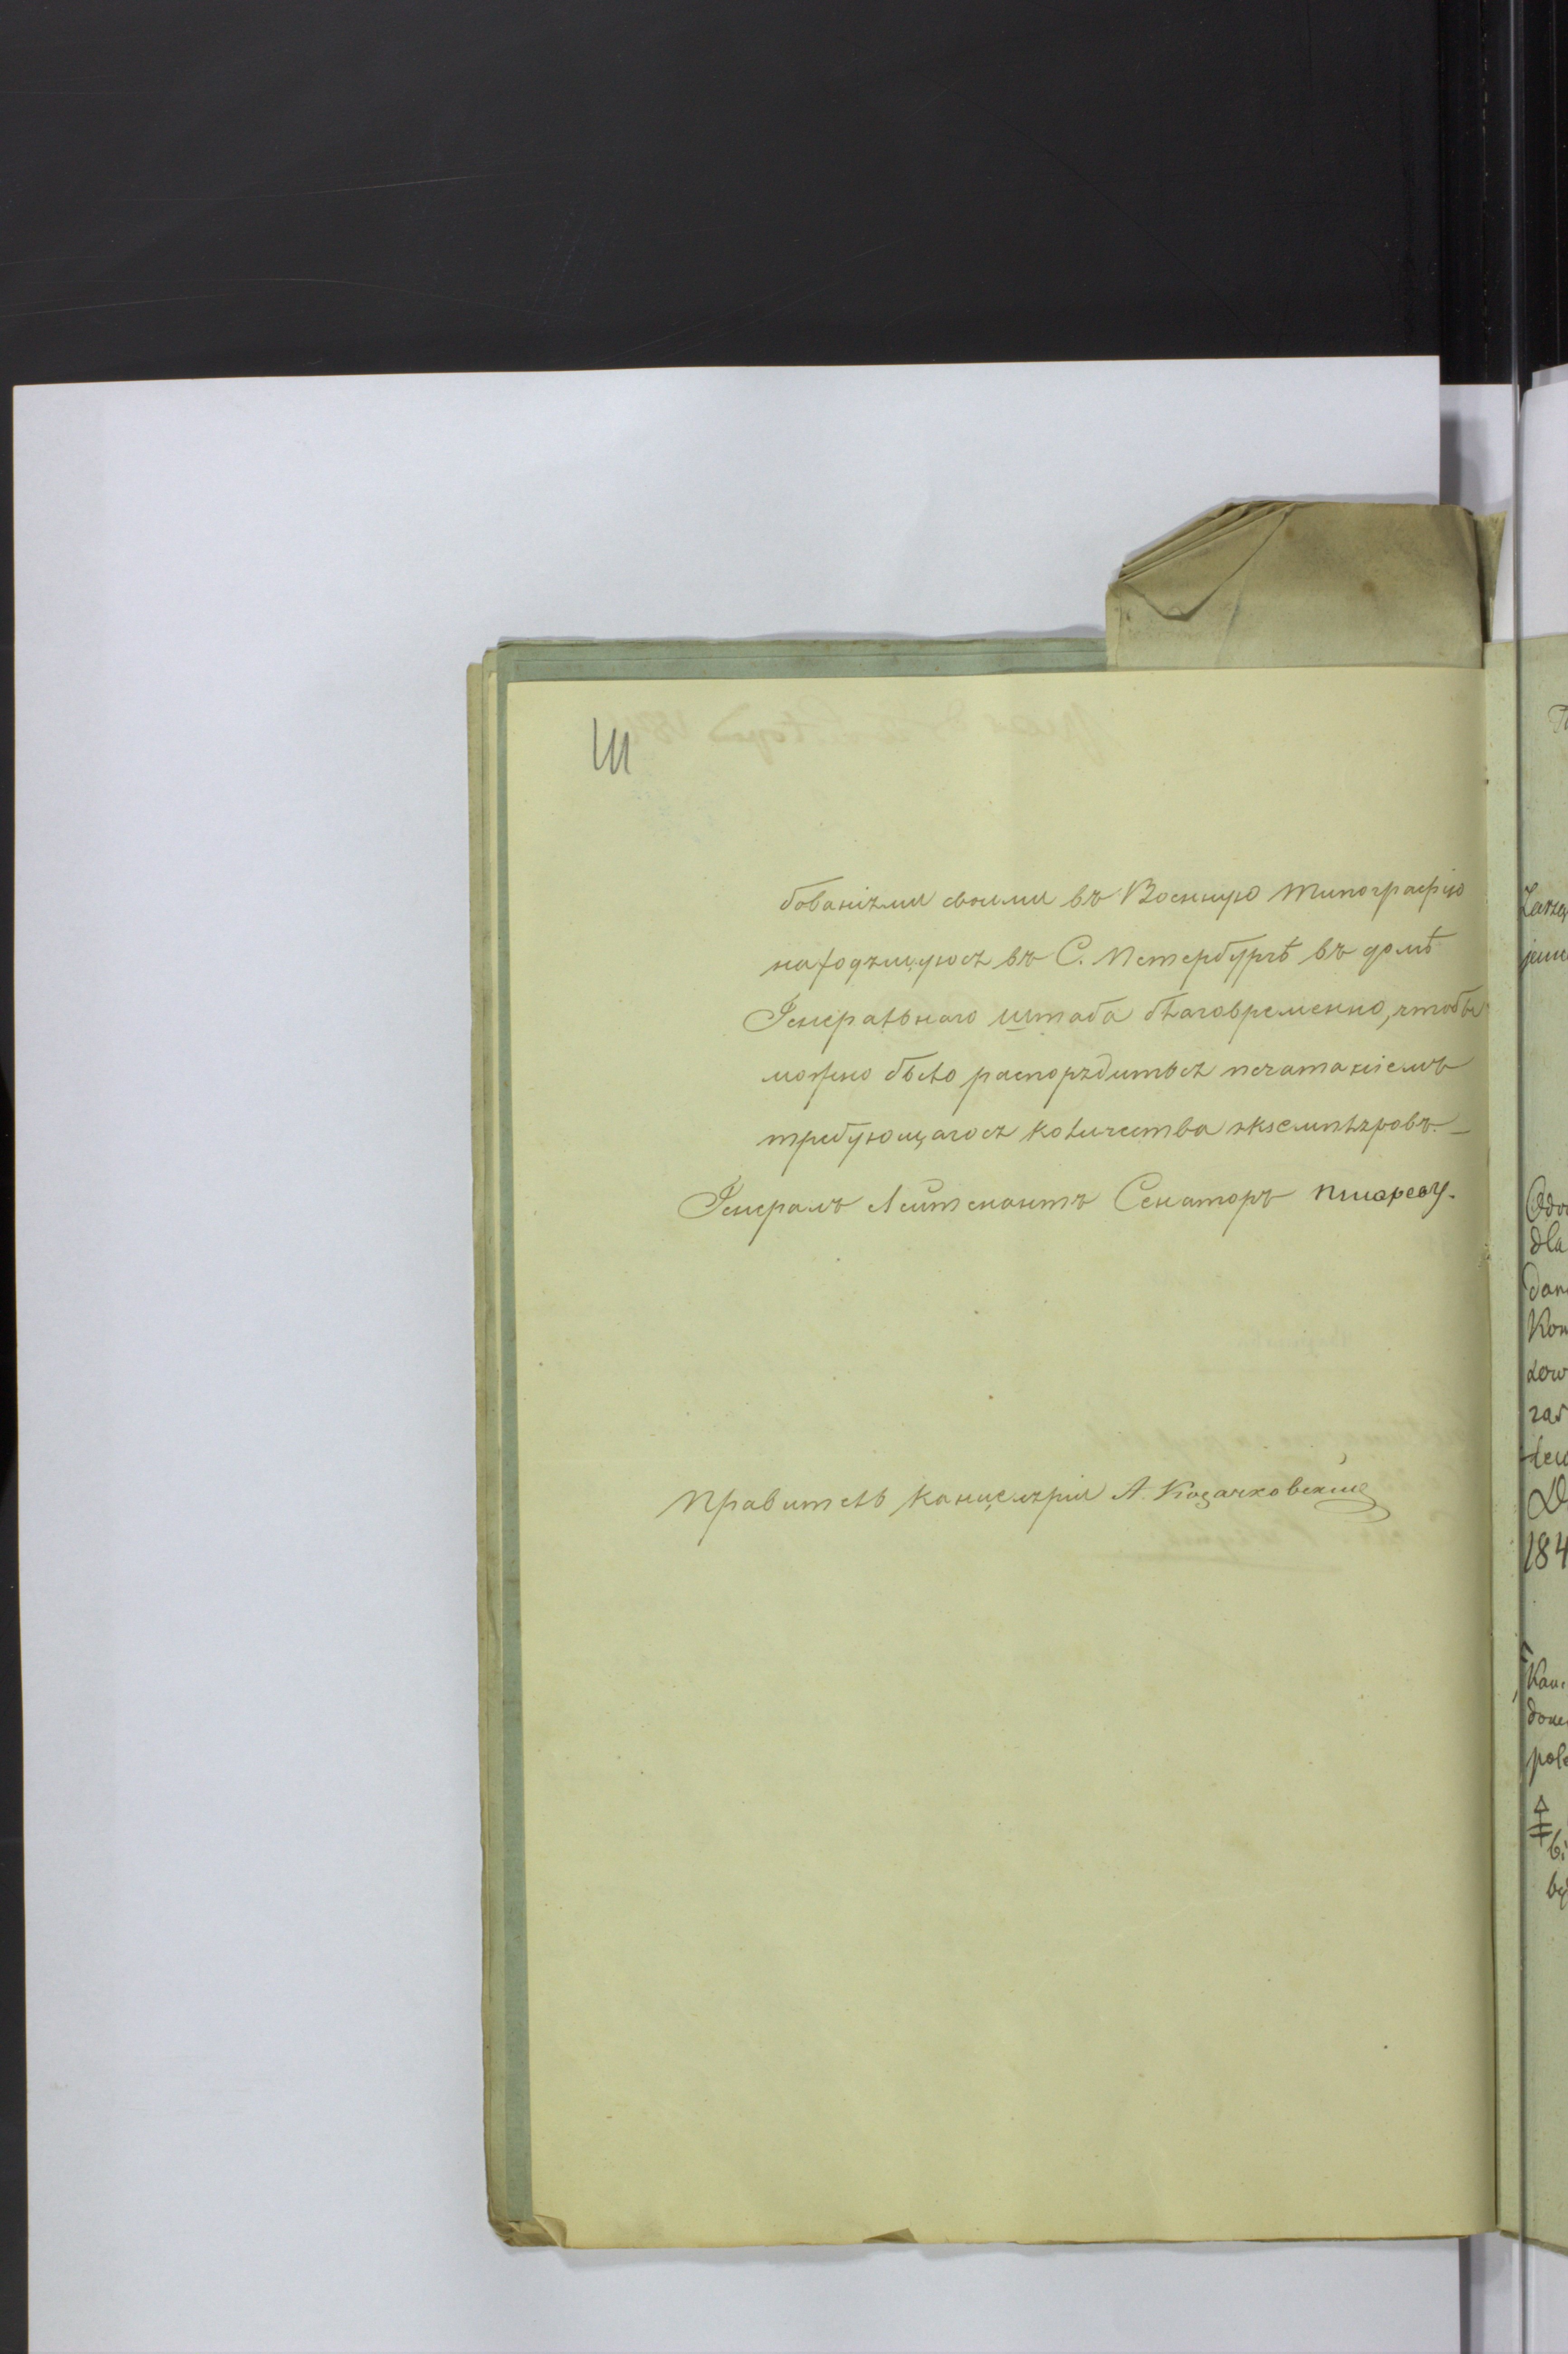 111
бованіями своими въ Военную Типографію
находящуюся въ С. Петербургѣ въ домѣ
Генеральнаго Штаба благовременно, чтобы
можно было распорядиться печатаніемъ
требующагося количества экземпляровъ.
Генералъ Лейтенантъ Сенаторъ
Правитель Канцеляріи А. Козачковскій